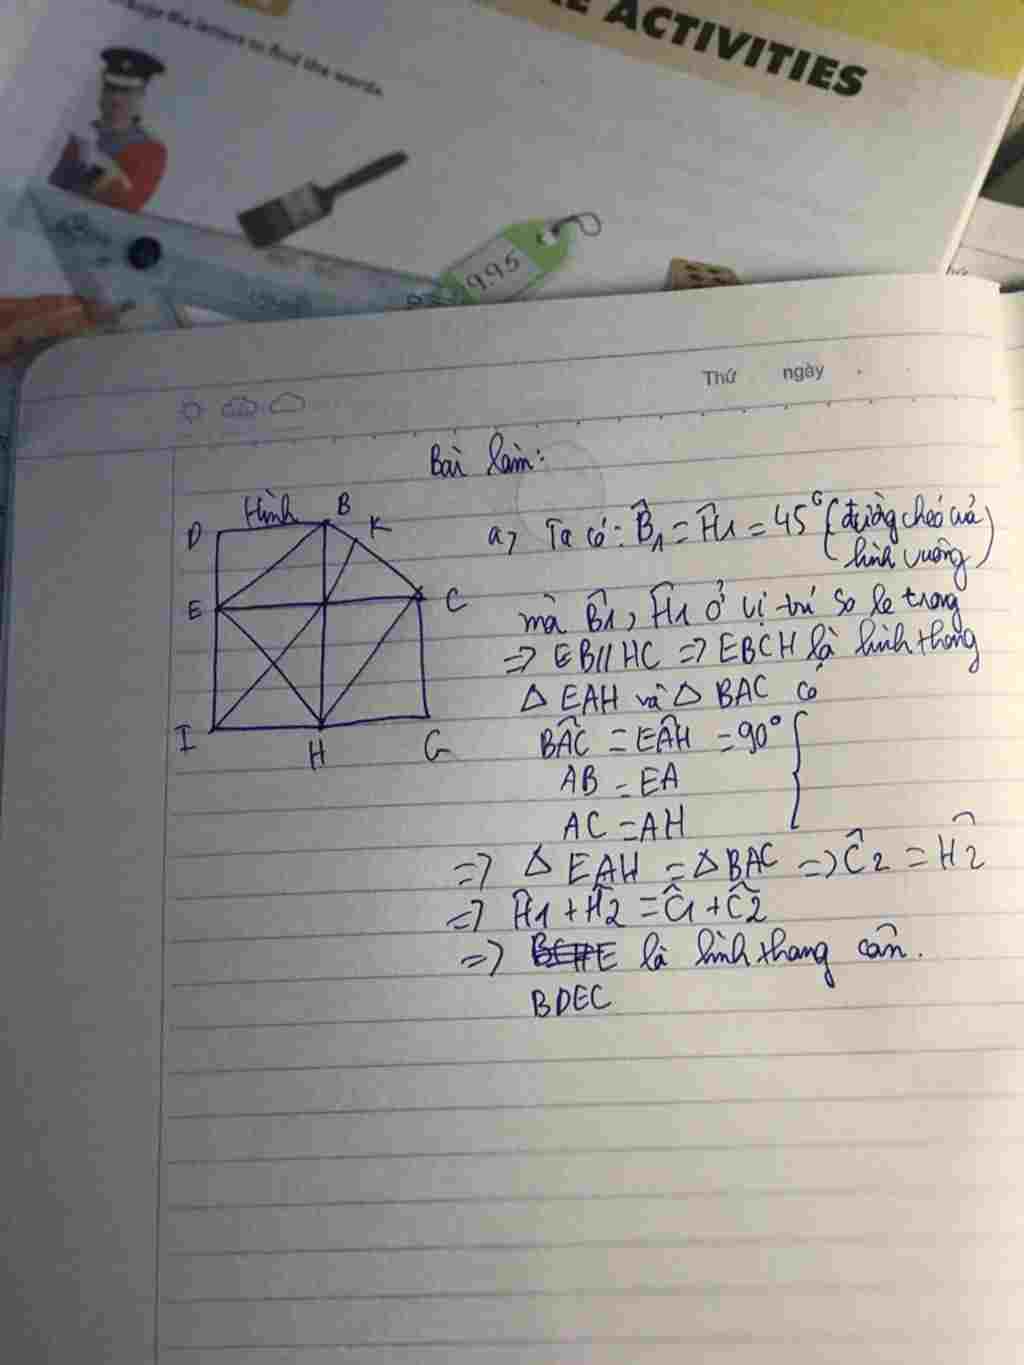 ACTIVITIES
the letters to find the words.
995
Thứ ngày
Bài làm:
Hình
B
D
K
E
C
I
H
G
a, Ta có: B̂1 = Ĥ1 = 45° (đường chéo của hình vuông)
mà B̂1, Ĥ1 ở vị trí so le trong
=> EB // HC => EBCH là hình thang
△ EAH và △ BAC có
BÂC = EÂH = 90°
AB = EA
AC = AH
=> △ EAH = △ BAC => Ĉ2 = Ĥ2
=> Ĥ1 + Ĥ2 = Ĉ1 + Ĉ2
=> BCHE là hình thang cân.
BDEC